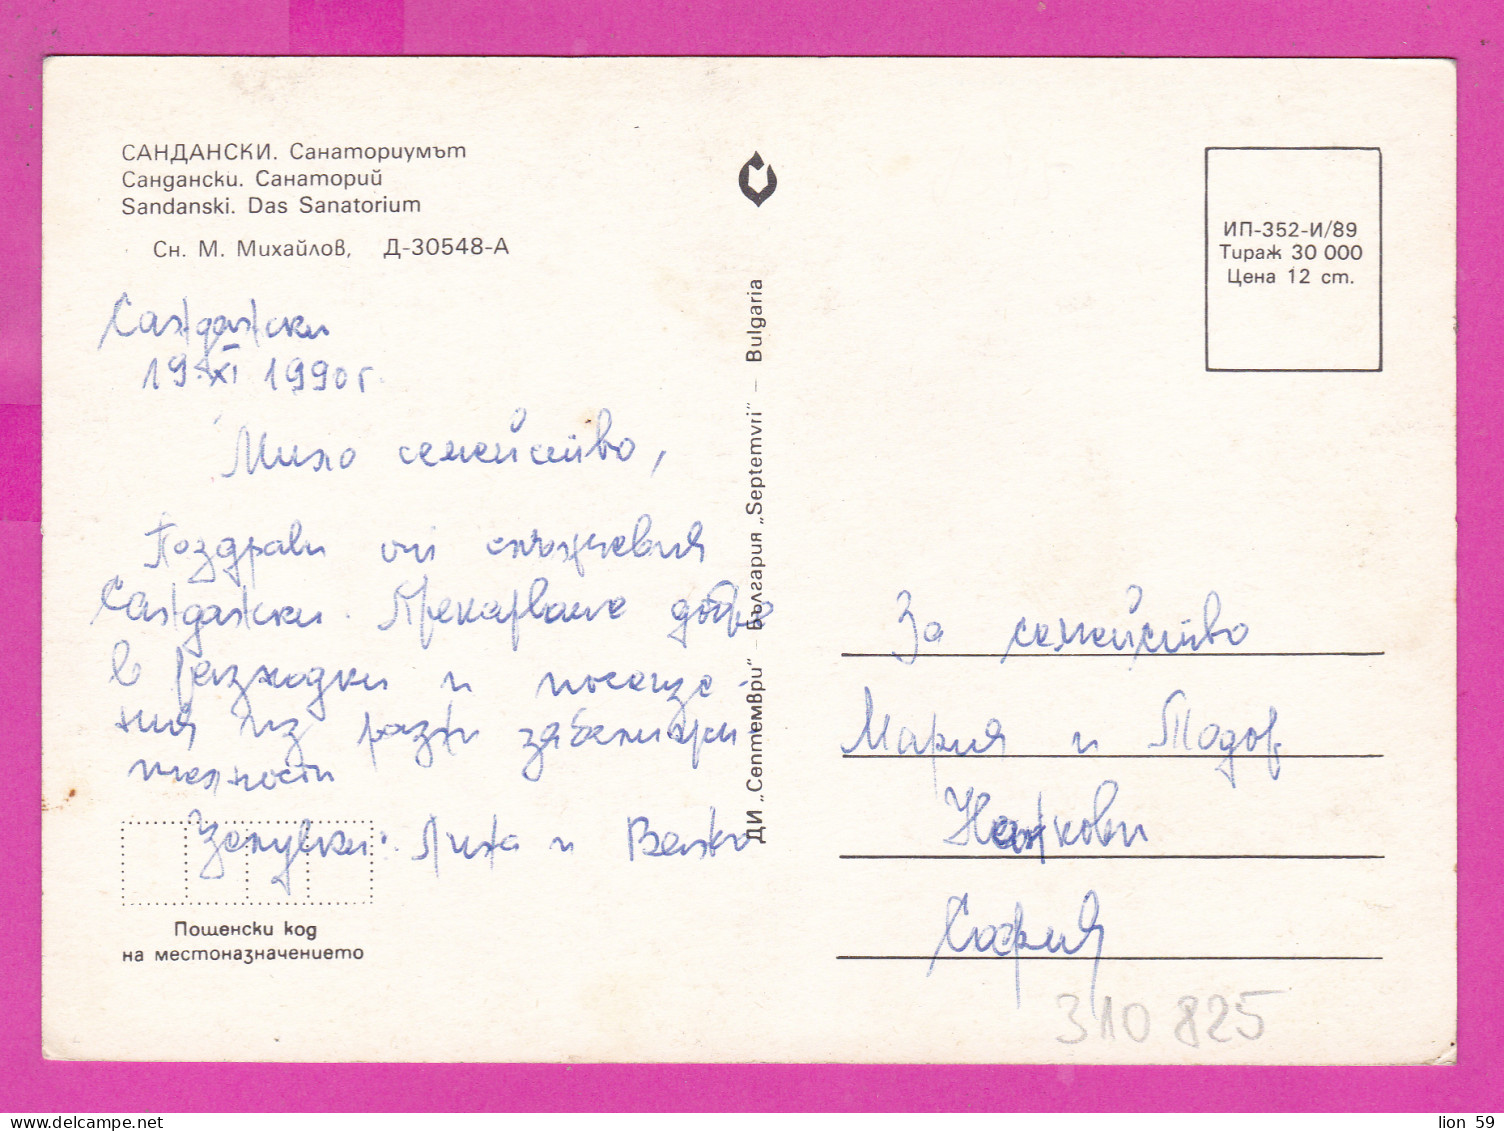 САНДАНСКИ. Санаториумът
Сандански. Санаторий
Sandanski. Das Sanatorium
Сн. М. Михайлов, Д-30548-А
Сандански
19.XI 1990 г.
Мило семейство,
Поздрави от слънчевия
Сандански. Прекарваме добре
в разходки и посеще-
ния из разни забележи-
телности
Целувки: Лина и Велко
Пощенски код
на местоназначението
ДИ „Септември“ – България „Septemvri“ – Bulgaria
ИП-352-И/89
Тираж 30 000
Цена 12 ст.
За семейство
Мария и Тодор
Найкови
София
310 825
lion 59